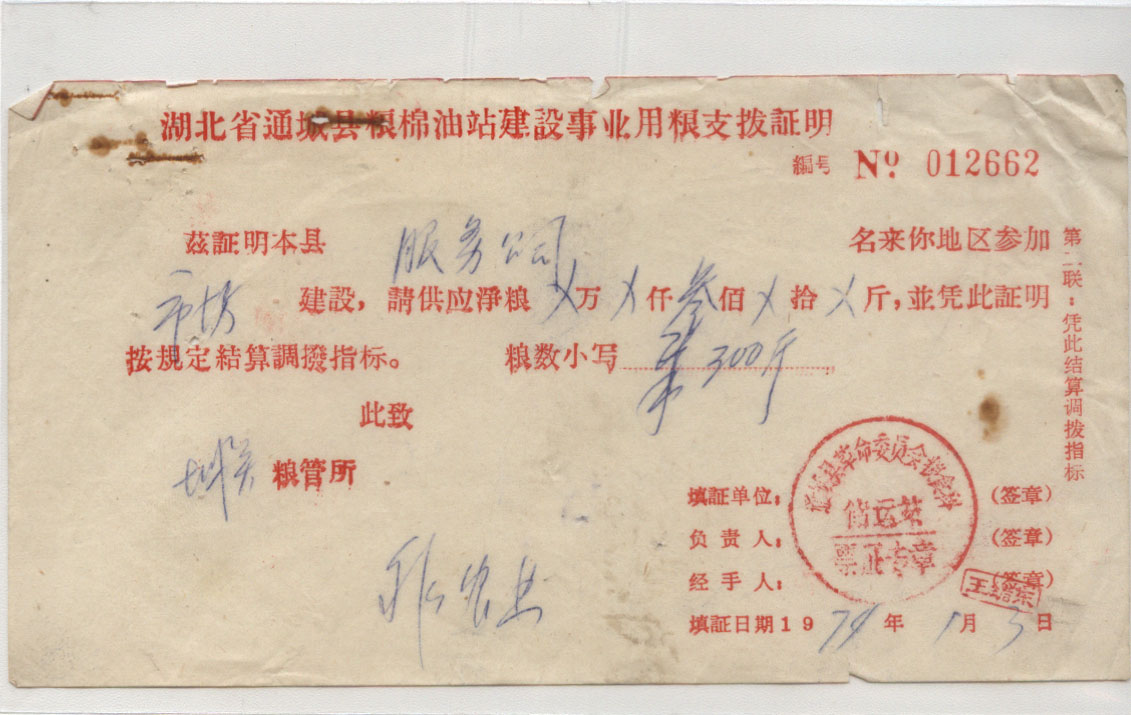 湖北省通城县粮棉油站建設事业用粮支拨証明
編号 № 012662
茲証明本县 服务公司 名来你地区参加
市坊 建設，請供应淨粮 乂万 乂仟 叁佰 乂拾 乂斤，並凭此証明
按規定結算調撥指标。 粮数小写 300斤
此致
城关 粮管所
填証单位： (签章)
负责人： (签章)
经手人： (签章)
填証日期 19 74 年 1 月 3 日
第二联：凭此结算调拨指标
通城县革命委员会粮食科
储运站
票证专章